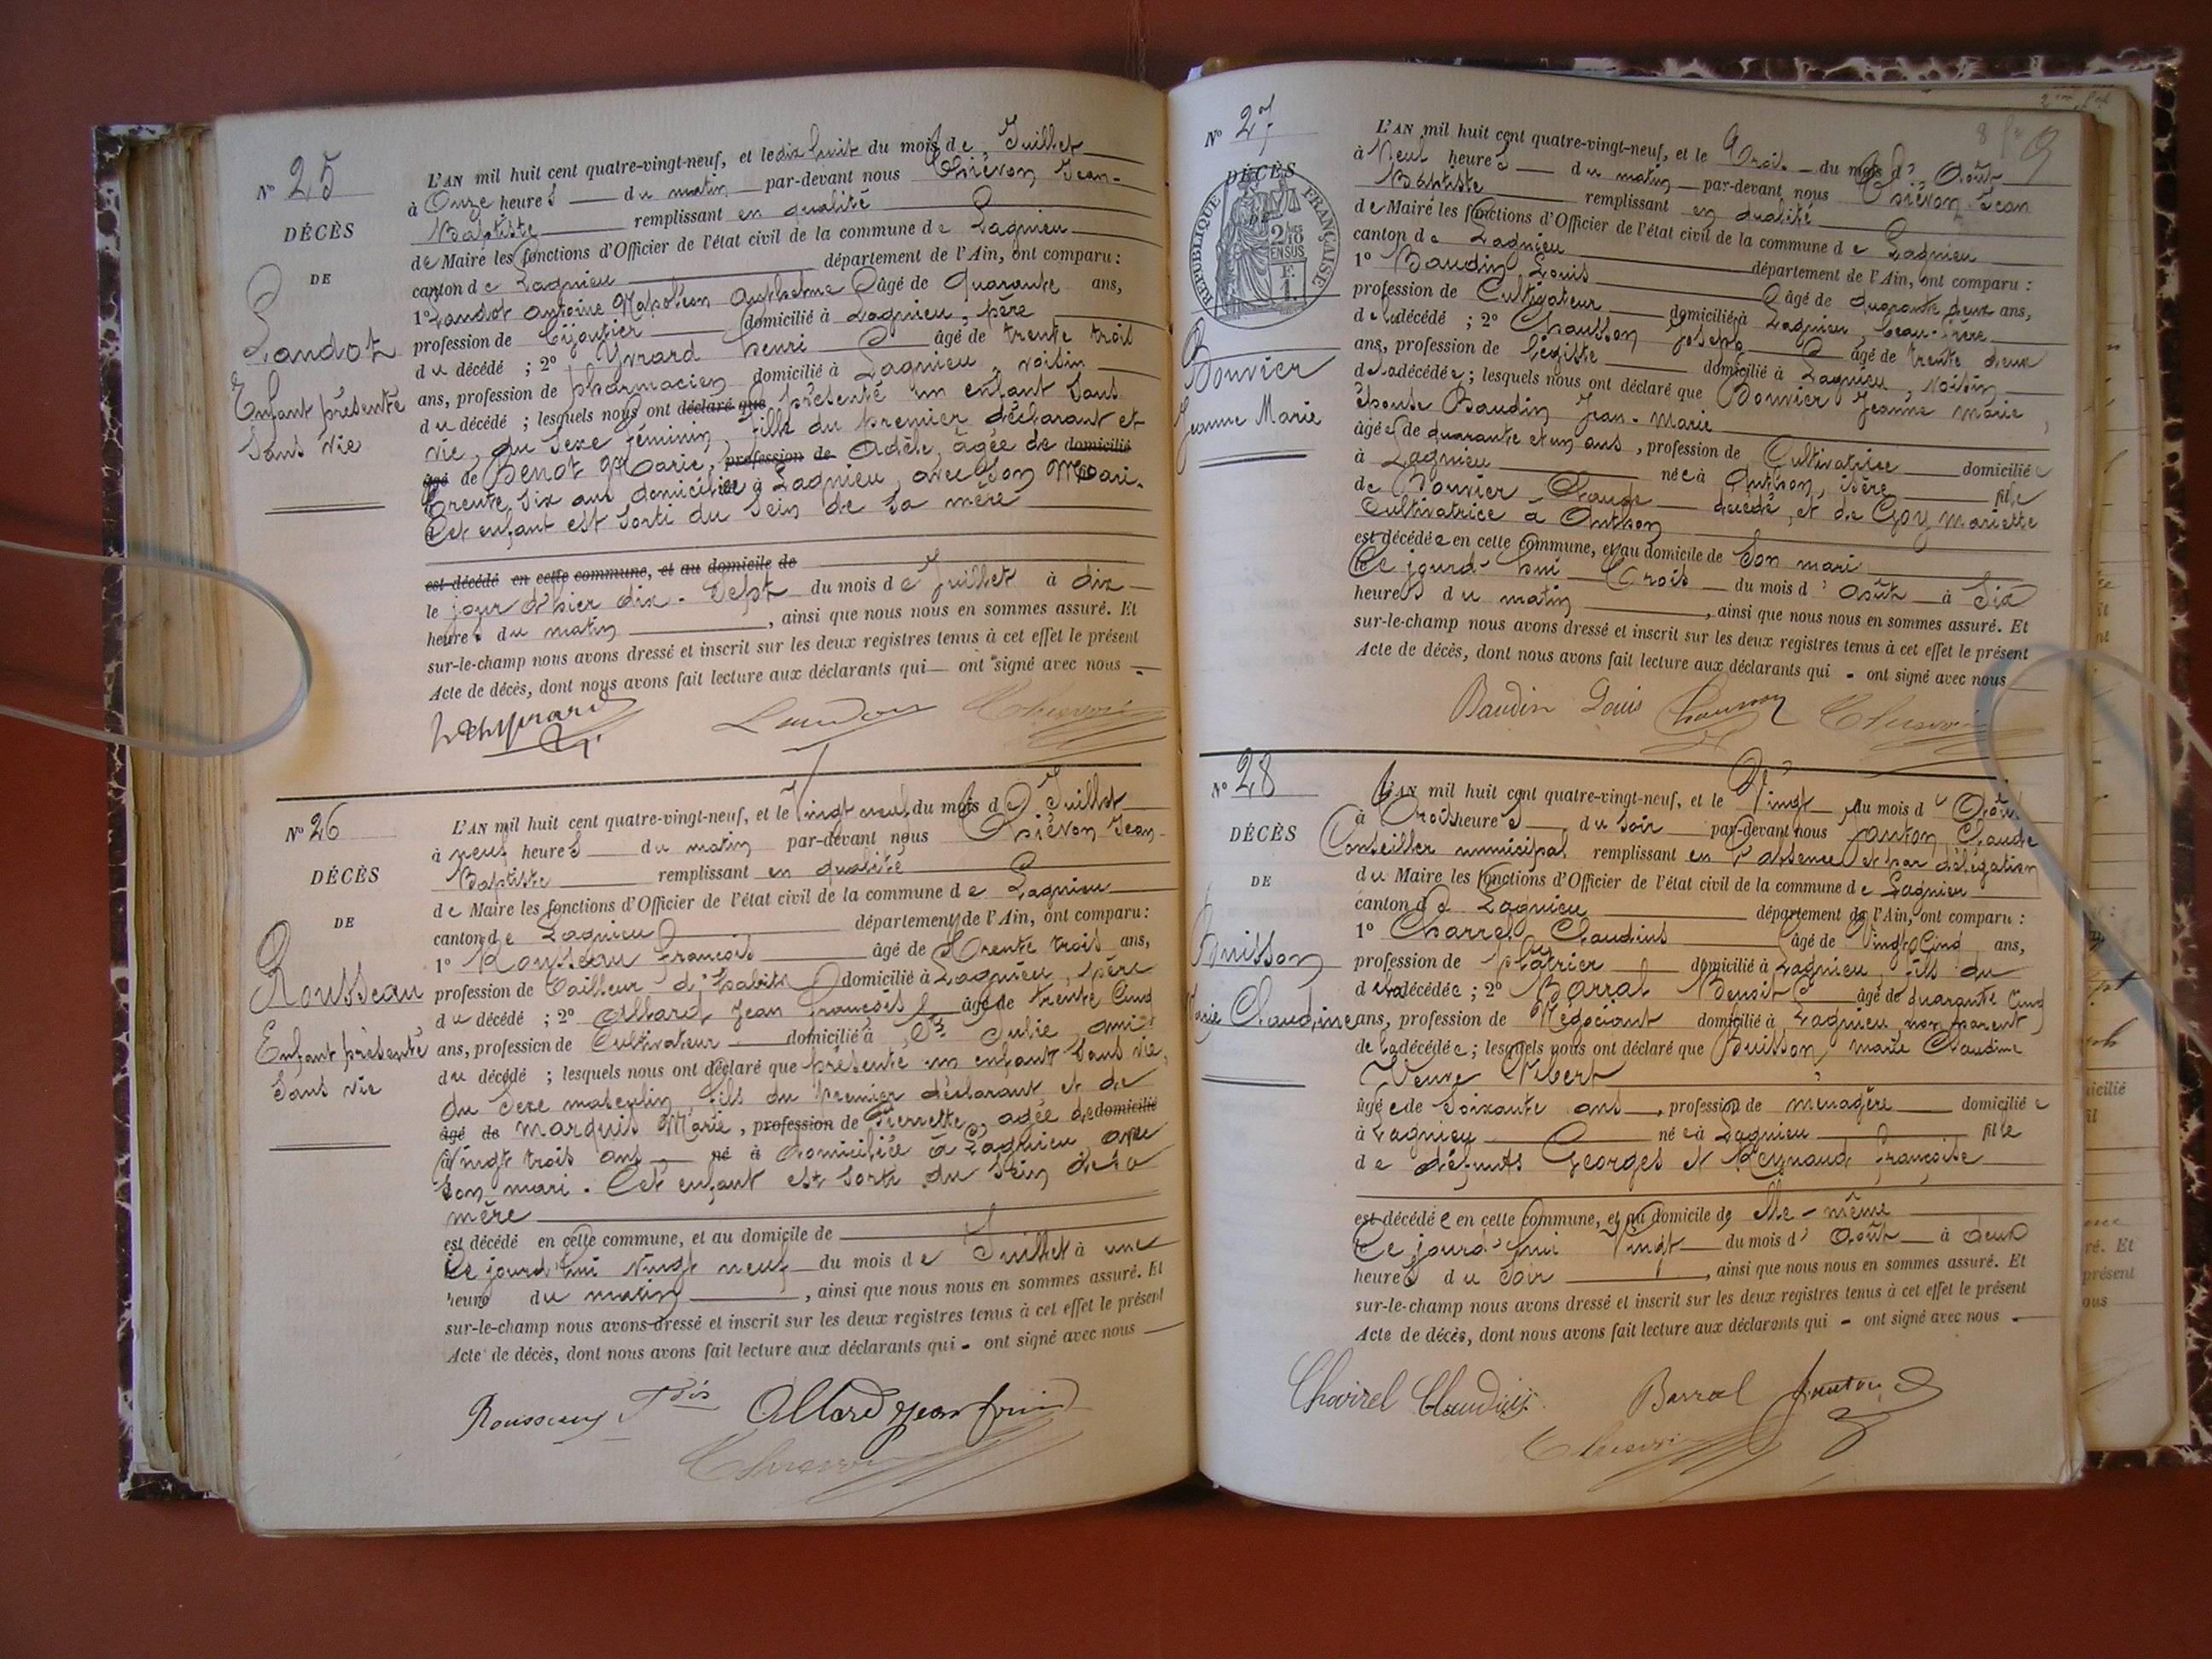 N° 25
DÉCÈS
DE
Landoz
Enfant présenté
Sans vie
L'AN mil huit cent quatre-vingt-neuf, et le dix huit du mois de Juillet
à Onze heures du matin par-devant nous Thiévon Jean-
Baptiste remplissant en qualité
de Maire les fonctions d'Officier de l'état civil de la commune de Lagnieu
canton de Lagnieu département de l'Ain, ont comparu :
1° Landoz Antoine Napoléon Anthelme âgé de Quarante ans,
profession de bijoutier domicilié à Lagnieu, père
du décédé ; 2° Yvrard henri âgé de trente trois
ans, profession de pharmacien domicilié à Lagnieu, voisin
du décédé ; lesquels nous ont déclaré que présenté un enfant Sans
vie, du Sexe féminin, fille du premier déclarant et
âgé de Benot Marie, profession de Adèle, agée de domicilié
trente Six ans domiciliée à Lagnieu, avec Son Mari.
Cet enfant est Sorti du Sein de Sa mère
est décédé en cette commune, et au domicile de
le jour d'hier dix-Sept du mois de Juillet à dix
heures du matin, ainsi que nous nous en sommes assuré. Et
sur-le-champ nous avons dressé et inscrit sur les deux registres tenus à cet effet le présent
Acte de décès, dont nous avons fait lecture aux déclarants qui ont signé avec nous
Landoz
N° 26
DÉCÈS
DE
Rousseau
Enfant présenté
Sans vie
L'AN mil huit cent quatre-vingt-neuf, et le Vingt neuf du mois de Juillet
à neuf heures du matin par-devant nous Thiévon Jean-
Baptiste remplissant en qualité
de Maire les fonctions d'Officier de l'état civil de la commune de Lagnieu
canton de Lagnieu département de l'Ain, ont comparu :
1° Rousseau François âgé de trente trois ans,
profession de Tailleur d'habits domicilié à Lagnieu, père
du décédé ; 2° Allard Jean François âgé de trente Cinq
ans, profession de Cultivateur domicilié à Ste Julie, ami
du décédé ; lesquels nous ont déclaré que présenté un enfant Sans vie,
du Sexe masculin, fils du premier déclarant et de
âgé de Marquis Marie, profession de Pierrette, agée de domicilié
à Vingt trois ans né à domiciliée à Lagnieu avec
Son mari. Cet enfant est Sorti du Sein de Sa
mère
est décédé en cette commune, et au domicile de
Ce jourd'hui Vingt neuf du mois de Juillet à une
heure du matin, ainsi que nous nous en sommes assuré. Et
sur-le-champ nous avons dressé et inscrit sur les deux registres tenus à cet effet le présent
Acte de décès, dont nous avons fait lecture aux déclarants qui - ont signé avec nous
Rousseau Fois Allard Jean
N° 27
DÉCÈS
DE
RÉPUBLIQUE FRANÇAISE
2/10
EN SUS
F.
1.
Bouvier
Jeanne Marie
L'AN mil huit cent quatre-vingt-neuf, et le Trois du mois d'Août
à Neuf heures du matin par-devant nous Thiévon Jean
Baptiste remplissant en qualité
de Maire les fonctions d'Officier de l'état civil de la commune de Lagnieu
canton de Lagnieu département de l'Ain, ont comparu :
1° Baudin Louis âgé de quarante deux ans,
profession de Cultivateur domicilié à Lagnieu, beau-frère
de la décédée ; 2° Chausson Joseph âgé de trente deux
ans, profession de légiste domicilié à Lagnieu, voisin
de la décédée ; lesquels nous ont déclaré que Bouvier Jeanne Marie,
épouse Baudin Jean-Marie
âgée de quarante et un ans, profession de Cultivatrice domiciliée
à Lagnieu née à Anthon, isère fille
de Bouvier Claude décédé, et de Goy Mariette
Cultivatrice à Anthon
est décédée en cette commune, et au domicile de Son mari
Ce jourd'hui Trois du mois d'Août à Six
heures du matin, ainsi que nous nous en sommes assuré. Et
sur-le-champ nous avons dressé et inscrit sur les deux registres tenus à cet effet le présent
Acte de décès, dont nous avons fait lecture aux déclarants qui - ont signé avec nous
Baudin Louis Chausson
N° 28
DÉCÈS
DE
Buisson
Marie Claudine
L'AN mil huit cent quatre-vingt-neuf, et le Vingt du mois d'Août
à Trois heures du Soir par-devant nous Janton Claude
Conseiller municipal remplissant en l'absence et par délégation
du Maire les fonctions d'Officier de l'état civil de la commune de Lagnieu
canton de Lagnieu département de l'Ain, ont comparu :
1° Charrel Claudius âgé de Vingt Cinq ans,
profession de plâtrier domicilié à Lagnieu, fils du
de la décédée ; 2° Barral Benoit âgé de quarante Cinq
ans, profession de Négociant domicilié à Lagnieu, non parent
de la décédée ; lesquels nous ont déclaré que Buisson Marie Claudine
Veuve Vibert
âgée de Soixante ans, profession de ménagère domiciliée
à Lagnieu née à Lagnieu fille
de défunts Georges et Reynaud Françoise
est décédée en cette commune, et au domicile de elle-même
Ce jourd'hui Vingt du mois d'Août à deux
heures du Soir, ainsi que nous nous en sommes assuré. Et
sur-le-champ nous avons dressé et inscrit sur les deux registres tenus à cet effet le présent
Acte de décès, dont nous avons fait lecture aux déclarants qui - ont signé avec nous
Claudius Barral Janton